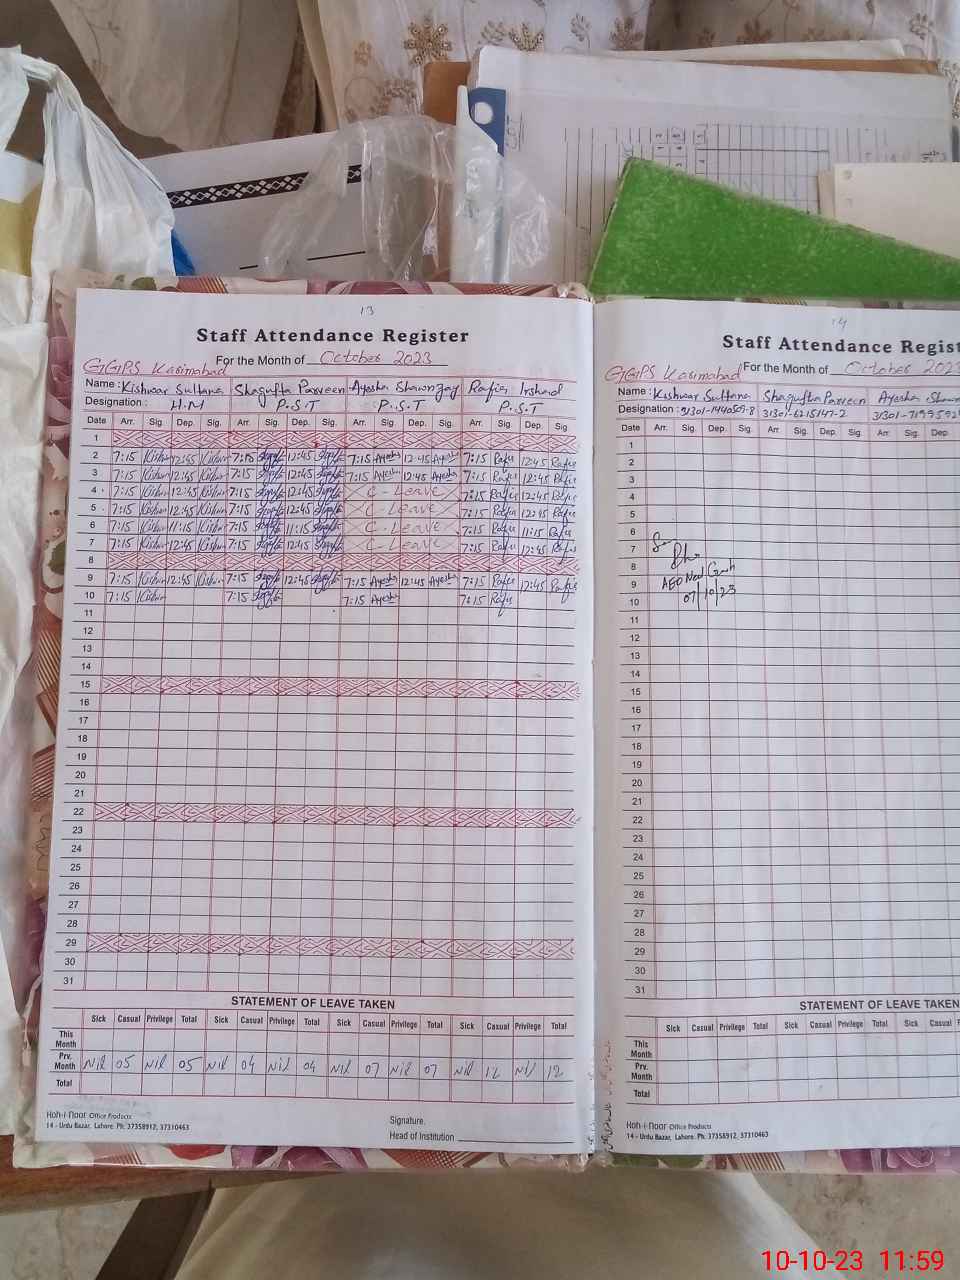 13
Staff Attendance Register
For the Month of October 2023
GGPS Karimabad
Name : Kishwar Sultana Shagufta Parveen Ayesha Shawnzay Rafia Irshad
Designation : H.M P.S.T P.S.T P.S.T
Date Arr. Sig. Dep. Sig. Arr. Sig. Dep. Sig. Arr. Sig. Dep. Sig. Arr. Sig. Dep. Sig.
1
2 7:15 Kishwar 12:45 Kishwar 7:15 12:45 7:15 Ayesha 12:45 Ayesha 7:15 Rafia 12:45 Rafia
3 7:15 Kishwar 12:45 Kishwar 7:15 12:45 7:15 Ayesha 12:45 Ayesha 7:15 Rafia 12:45 Rafia
4 7:15 Kishwar 12:45 Kishwar 7:15 12:45 C-Leave 7:15 Rafia 12:45 Rafia
5 7:15 Kishwar 12:45 Kishwar 7:15 12:45 C-Leave 7:15 Rafia 12:45 Rafia
6 7:15 Kishwar 11:15 Kishwar 7:15 11:15 C-Leave 7:15 Rafia 11:15 Rafia
7 7:15 Kishwar 12:45 Kishwar 7:15 12:45 C-Leave 7:15 Rafia 12:45 Rafia
8
9 7:15 Kishwar 12:45 Kishwar 7:15 12:45 7:15 Ayesha 12:45 Ayesha 7:15 Rafia 12:45 Rafia
10 7:15 Kishwar 7:15 7:15 Ayesha 7:15 Rafia
11
12
13
14
15
16
17
18
19
20
21
22
23
24
25
26
27
28
29
30
31
STATEMENT OF LEAVE TAKEN
Sick Casual Privilege Total Sick Casual Privilege Total Sick Casual Privilege Total Sick Casual Privilege Total
This Month
Prv. Month Nil 05 Nil 05 Nil 04 Nil 04 Nil 07 Nil 07 Nil 12 Nil 12
Total
Koh-i-Noor Office Products
14 - Urdu Bazar, Lahore. Ph: 37358912, 37310463
Signature.
Head of Institution
14
Staff Attendance Regist
For the Month of October 2023
GGPS Karimabad
Name : Kishwar Sultana Shagufta Parveen Ayesha Shawn
Designation : 31301-1440509-8 31301-6215147-2
Date Arr. Sig. Dep. Sig. Arr. Sig. Dep. Sig. Arr. Sig. Dep.
1
2
3
4
5
6
7
8
9
10
AEO
07/10/23
11
12
13
14
15
16
17
18
19
20
21
22
23
24
25
26
27
28
29
30
31
STATEMENT OF LEAVE TAKEN
Sick Casual Privilege Total Sick Casual Privilege Total Sick Casual
This Month
Prv. Month
Total
Koh-i-Noor Office Products
14 - Urdu Bazar, Lahore. Ph: 37358912, 37310463
10-10-23 11:59